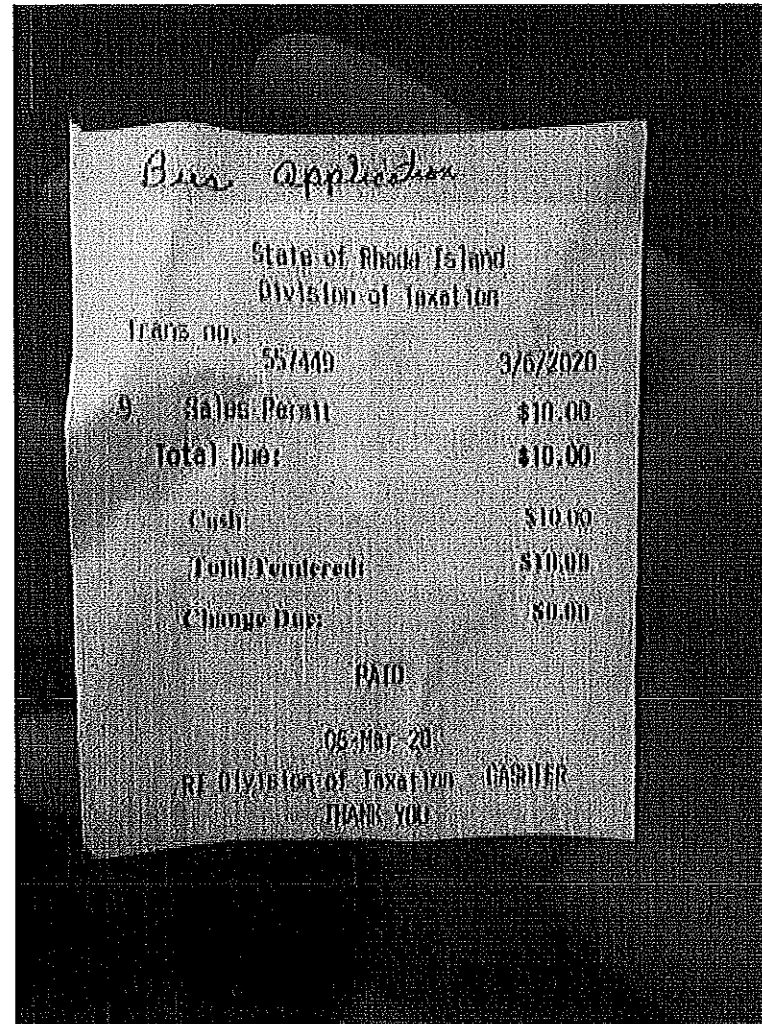 Bus. application
State of Rhode Island
Division of Taxation
Trans no.
557449 3/6/2020
9. Sales Permit $10.00
Total Due: $10.00
Cash $10.00
Total Tendered: $10.00
Change Due: $0.00
PAID
06-Mar-20
RI Division of Taxation CASHIER
THANK YOU